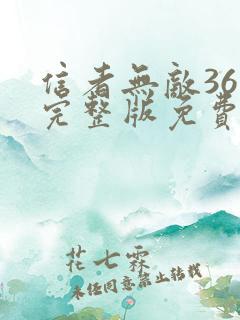 信者無敵36
完整版免費
花七霖
未经同意禁止转载